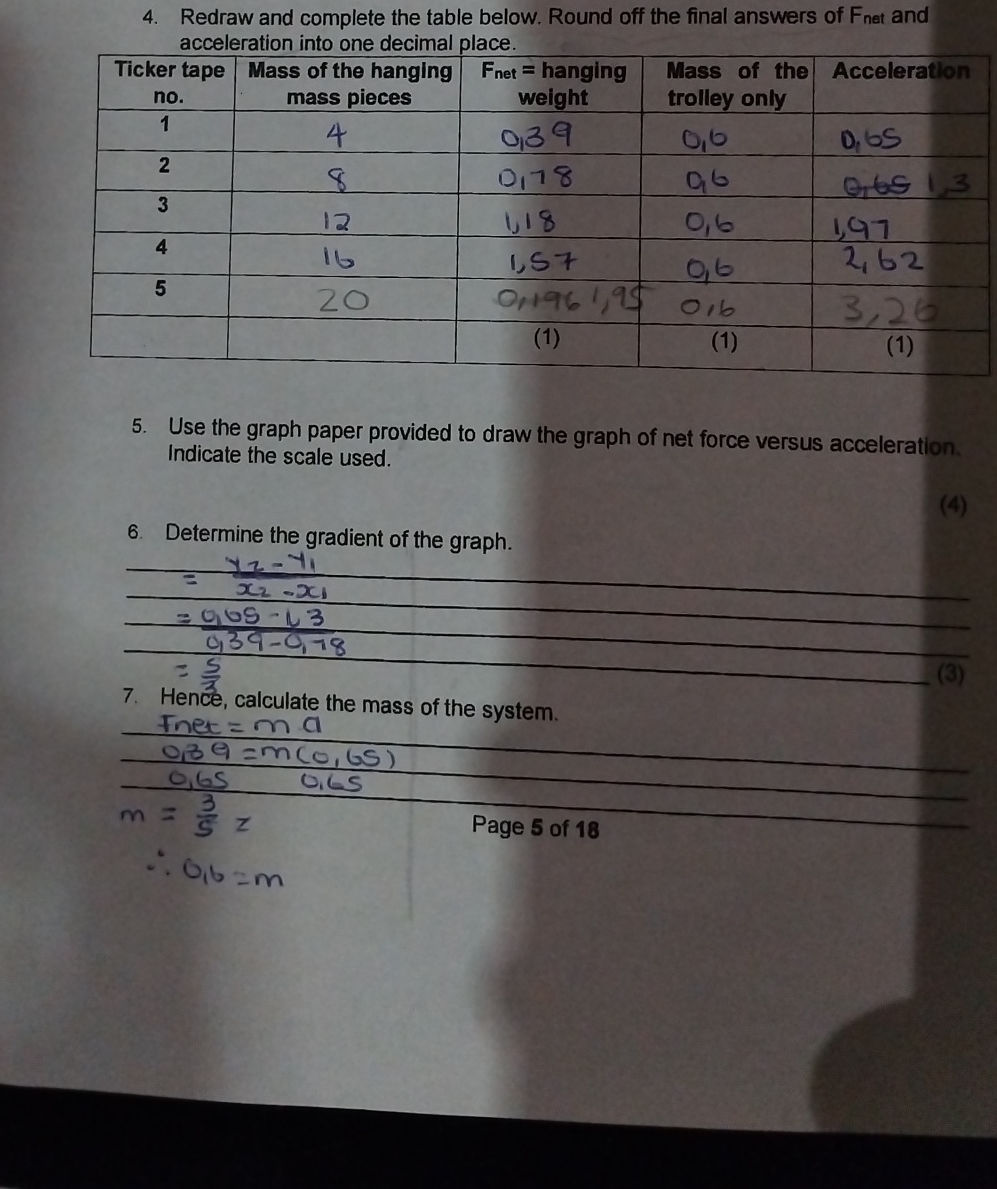 4. Redraw and complete the table below. Round off the final answers of Fnet and
acceleration into one decimal place.
Ticker tape no. Mass of the hanging mass pieces Fnet = hanging weight Mass of the trolley only Acceleration
1 4 0,39 0,6 0,65
2 8 0,78 0,6 0,65 1,3
3 12 1,18 0,6 1,97
4 16 1,57 0,6 2,62
5 20 0,196 1,95 0,6 3,26
(1) (1) (1)
5. Use the graph paper provided to draw the graph of net force versus acceleration.
Indicate the scale used.
(4)
6. Determine the gradient of the graph.
= Y2 - Y1
x2 - x1
= 0,65 - 1,3
0,39 - 0,78
= 5
3
(3)
7. Hence, calculate the mass of the system.
Fnet = ma
0,39 = m(0,65)
0,65 0,65
m = 3
5
Page 5 of 18
∴ 0,6 = m